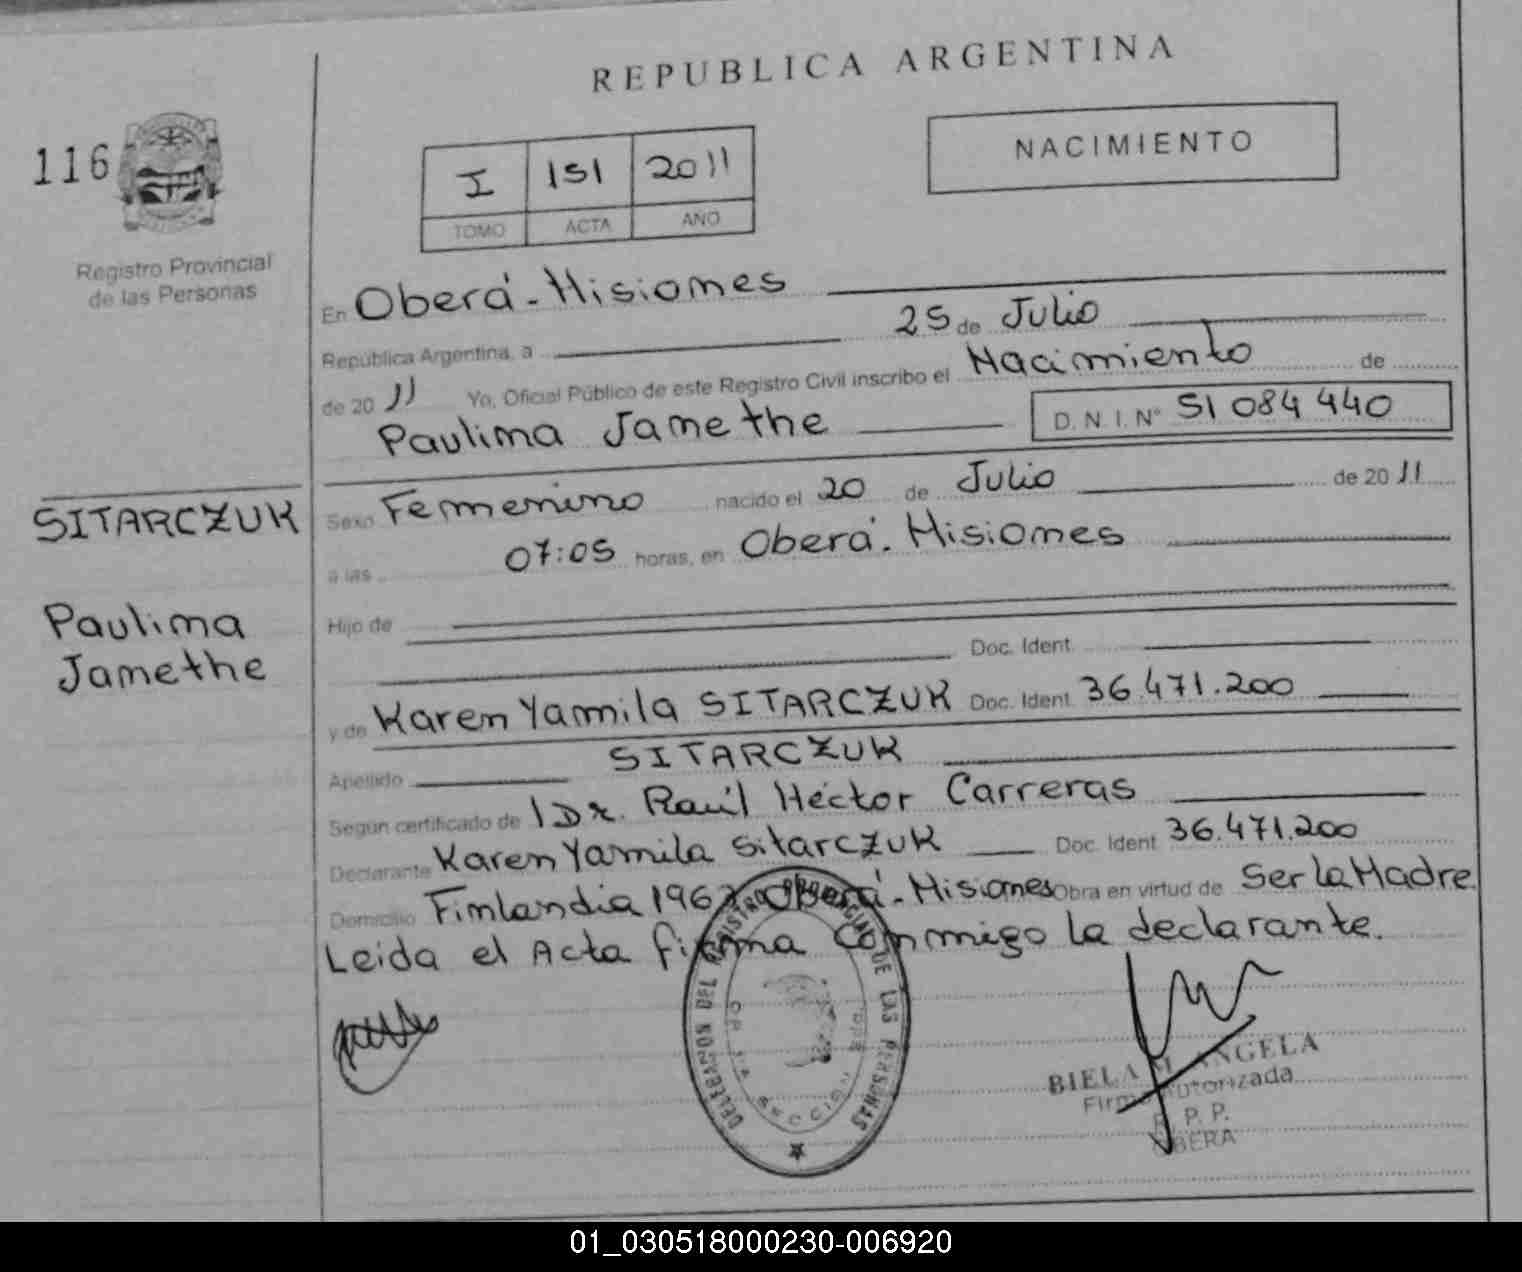 REPUBLICA ARGENTINA
116
NACIMIENTO
I 151 2011
TOMO ACTA AÑO
Registro Provincial
de las Personas
En Oberá - Misiones
República Argentina, a 25 de Julio
de 2011 Yo, Oficial Público de este Registro Civil inscribo el Nacimiento de
Paulina Janethe D. N. I. Nº 51 084 440
SITARCZUK
Sexo Femenino nacido el 20 de Julio de 2011
a las 07:05 horas, en Oberá. Misiones
Paulina
Janethe
Hijo de
Doc. Ident.
y de Karen Yamila SITARCZUK Doc. Ident. 36.471.200
Apellido SITARCZUK
Según certificado de 1 Dr. Raúl Héctor Carreras
Declarante Karen Yamila Sitarczuk Doc. Ident. 36.471.200
Domicilio Finlandia Oberá - Misiones Obra en virtud de Ser la Madre
Leida el Acta firma conmigo la declarante.
DELEGACION DEL REGISTRO PROVINCIAL DE LAS PERSONAS
SECCION
BIELA M. ANGELA
Firma Autorizada
R. P. P.
OBERA
01_030518000230-006920